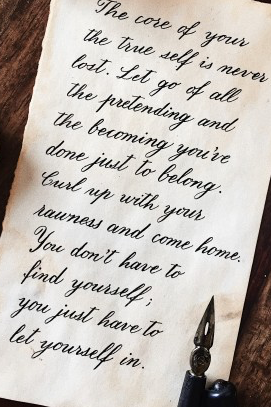 The core of your
the true self is never
lost. Let go of all
the pretending and
the becoming you've
done just to belong.
Curl up with your
rawness and come home.
You don't have to
find yourself;
you just have to
let yourself in.